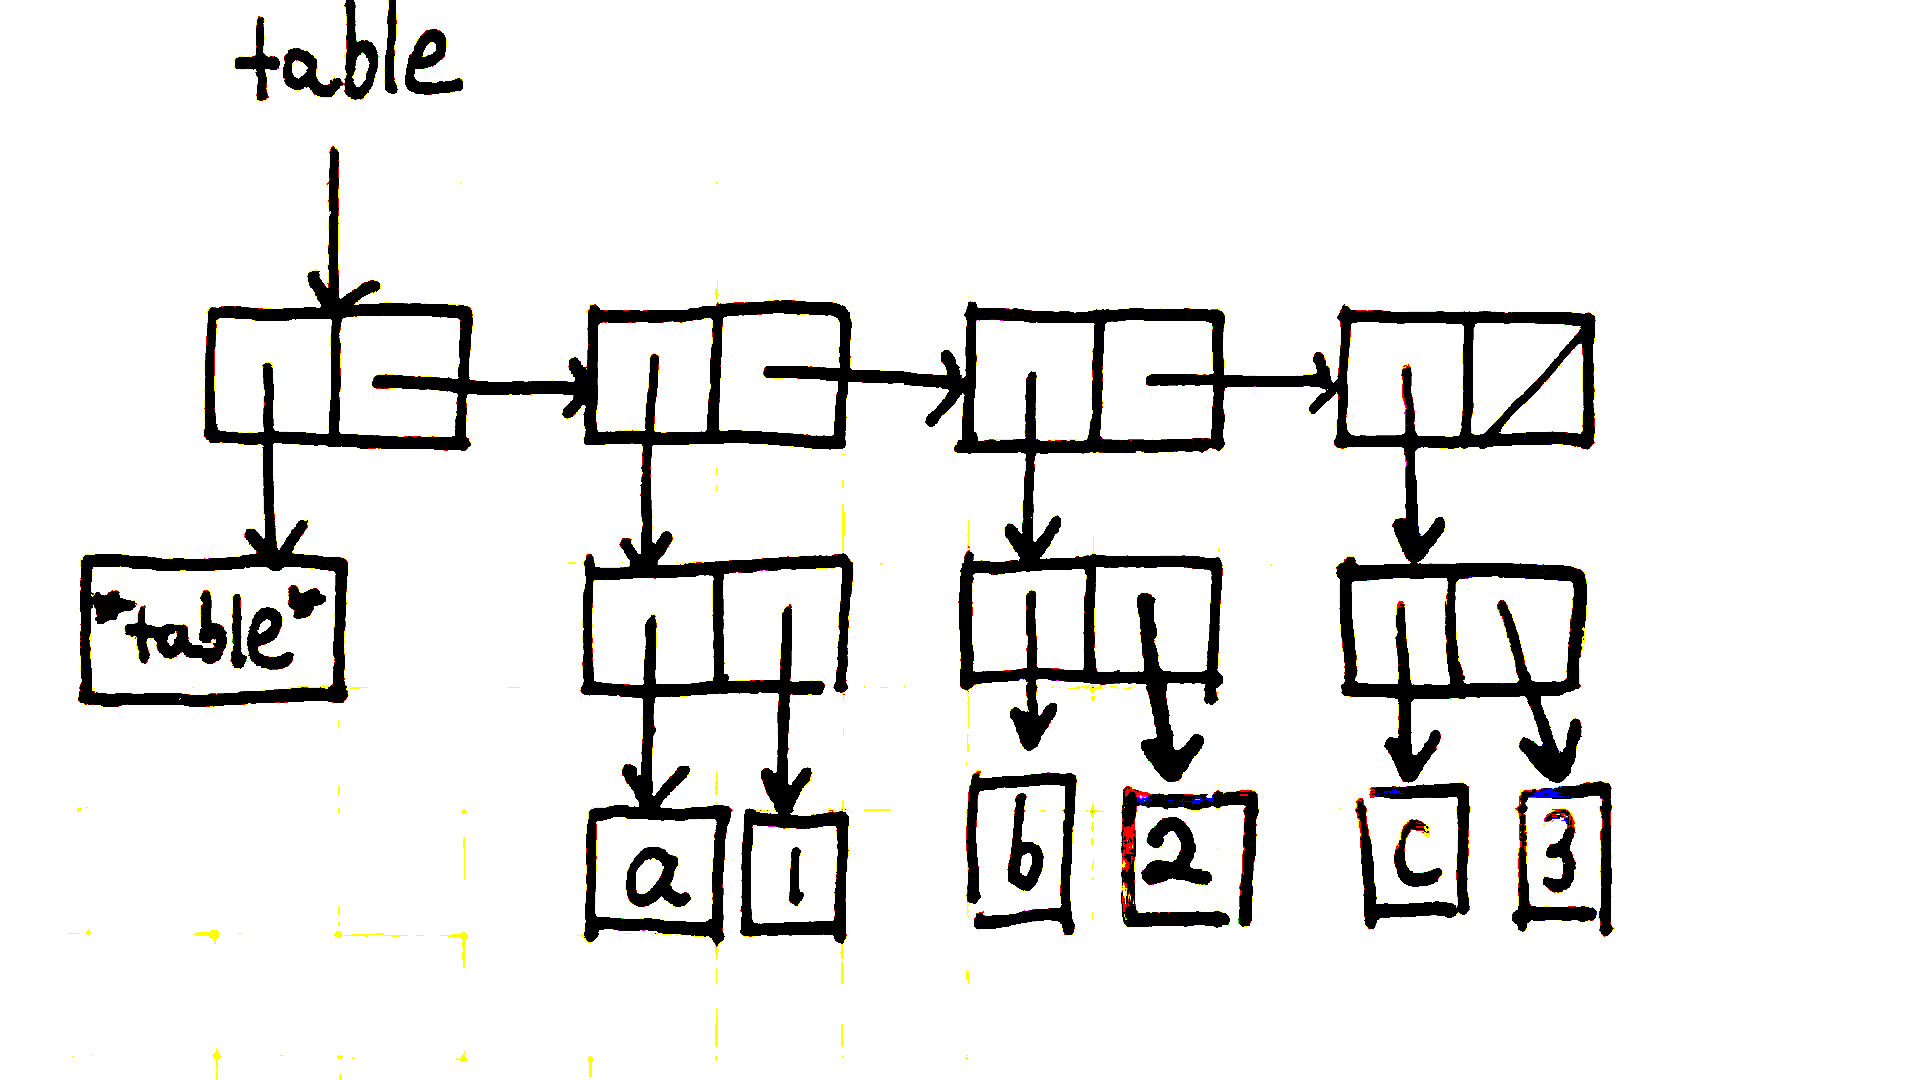 table
*table*
a 1 b 2 c 3